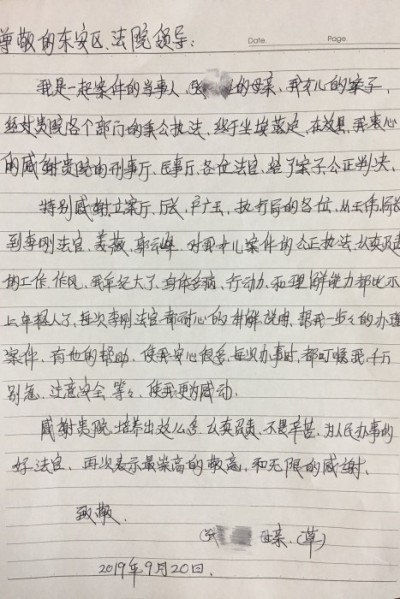 尊敬的东安区法院领导:
Date. Page.
我是一起案件的当事人,张 的母亲,我女儿的案子
经过贵院各个部门的秉公执法,终于尘埃落定,在这里,我衷心
的感谢贵院的刑事厅、民事厅、各位法官,给了案子公正判决,
特别感谢立案厅、 卢广玉,执行局的各位,从王伟局长
到李刚法官、姜薇、郭云峰,对我女儿案件的公正执法,认真负责
的工作作风,我年纪大了,身体多病,行动力和理解能力都比不
上年轻人了,每次李刚法官都耐心的讲解说明,帮我一步々的办理
案件,有他的帮助,使我安心很多,每次办事时,都叮嘱我,千万
别急,注意安全等々,使我更为感动.
感谢贵院,培养出这么 认真负责,不畏辛苦,为人民办事的
好法官,再次表示最崇高的敬意,和无限的感谢,
致敬.
(张 母亲.(草)
2019年9月20日.